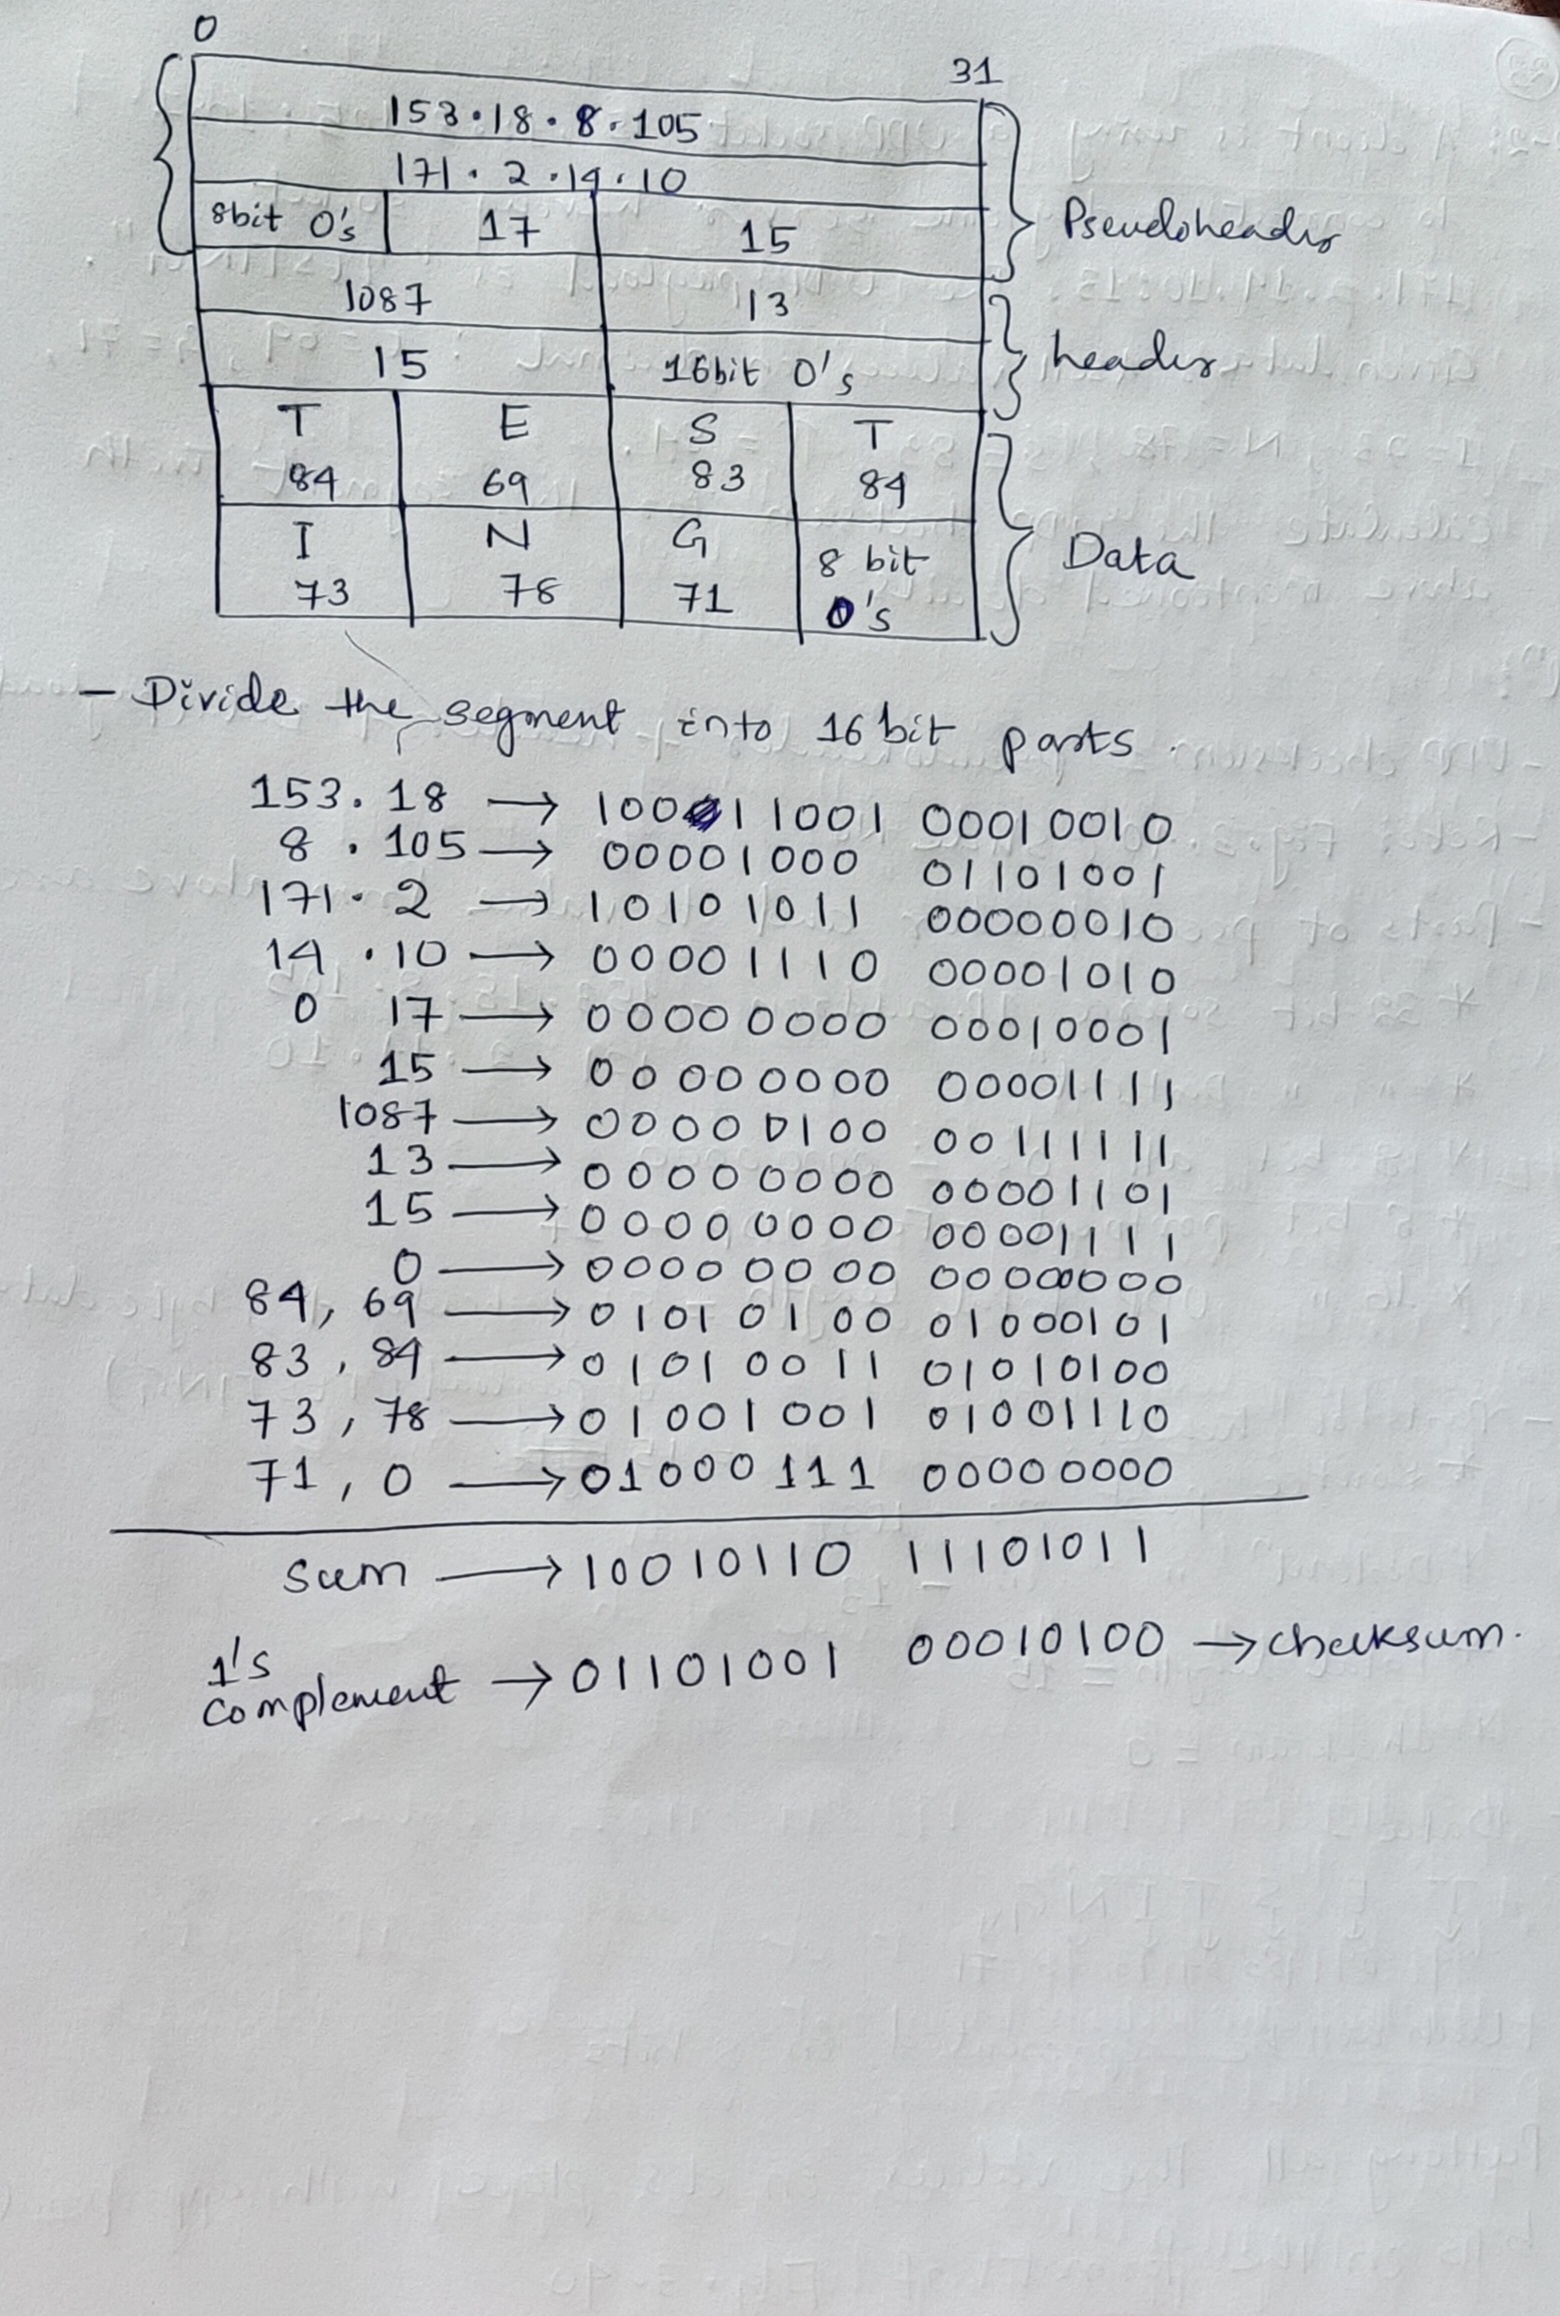 0
31
153.18.8.105
171.2.14.10
8bit 0's 17 15
Pseudoheader
1087 13
15 16bit 0's
header
T E S T
84 69 83 84
I N G 8 bit
73 78 71 0's
Data
- Divide the segment into 16 bit parts.
153.18 → 10011001 00010010
8.105 → 00001000 01101001
171.2 → 10101011 00000010
14.10 → 00001110 00001010
0 17 → 00000000 00010001
15 → 00000000 00001111
1087 → 00000100 00111111
13 → 00000000 00001101
15 → 00000000 00001111
0 → 00000000 00000000
84, 69 → 01010100 01000101
83, 84 → 01010011 01010100
73, 78 → 01001001 01001110
71, 0 → 01000111 00000000
Sum → 10010110 11101011
1's
complement → 01101001 00010100 → checksum.